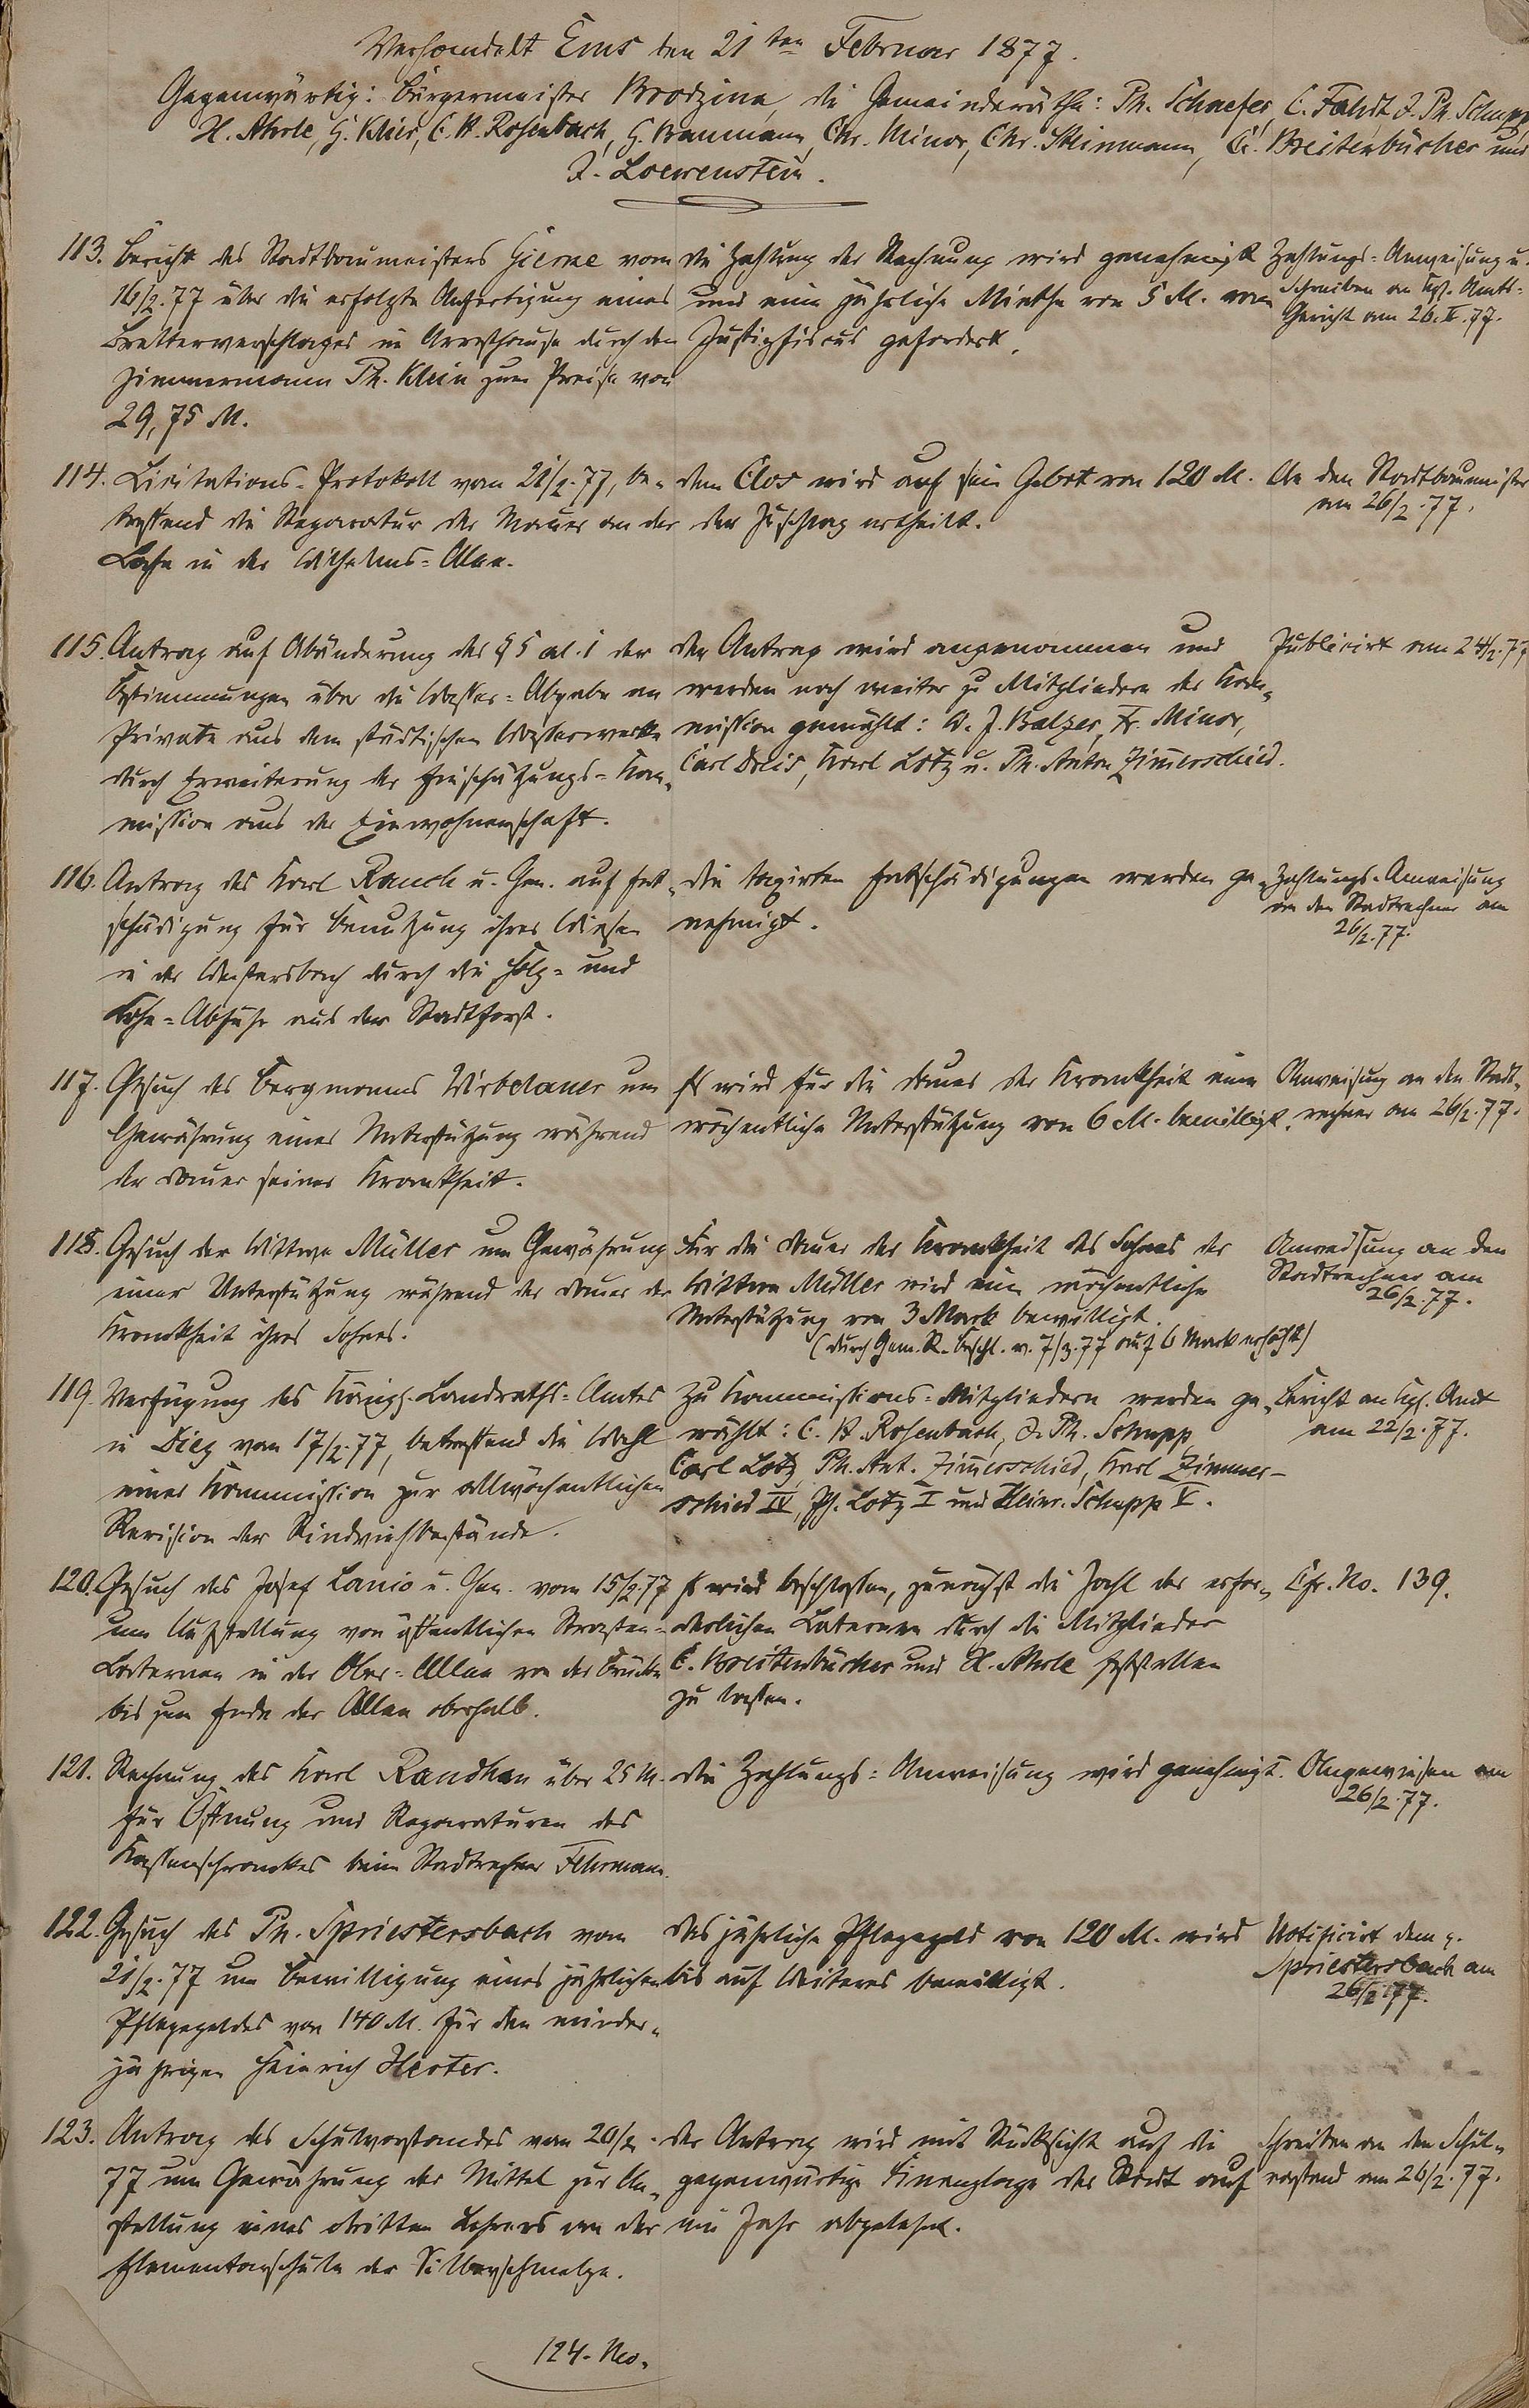 Verhandelt Ems den 21ten Februar 1877.
Gegenwärtig: Bürgermeister Brodzina, die Gemeinderäthe: Ph. Schaefer, C. Fahdt, J. Ph. Schupp,
H. Ahrle, G. Klier, C. A. Rosenbach, G. Baumann, Chr. Minor, Chr. Steinmann, C. Breitenbücher und
J. Loewenstein.
113. Bericht des Stadtbaumeisters Gierne vom
16/2. 77 über die erfolgte Anfertigung eines
Bretterverschlages im Arresthause durch den
Zimmermann Ph. Klein zum Preise von
29,75 M.
die Zahlung der Rechnung wird genehmigt
und eine jährliche Miethe von 5 M. vom
Justizfiscus gefordert.
Zahlungs-Anweisung u.
Schreiben an Kgl. Amts-
Gericht am 26. II. 77.
114. Licitations-Protokoll vom 21/2. 77, be-
treffend die Reparatur der Mauer an der
Lahn in der Wilhelms-Allee.
dem Clos wird auf sein Gebot von 120 M.
der Zuschlag ertheilt.
An den Stadtbaumeister
am 26/2. 77.
115. Antrag auf Abänderung des § 5 al. 1 der
Bestimmungen über die Wasser-Abgabe an
Private aus dem städtischen Wasserwerke
durch Erweiterung der Einschätzungs-Kom-
mission aus der Einwohnerschaft.
der Antrag wird angenommen und
werden noch weiter zu Mitgliedern der Kom-
mission gewählt: W. J. Balzer, Fr. Minor,
Carl Dreis, Karl Lotz u. Ph. Anton Zimerschied.
Publicirt am 24/2. 77
116. Antrag des Karl Rauch u. Gen. auf Ent-
schädigung für Benutzung ihrer Wiesen
in der Weistersbach durch die Holz- und
Lohe-Abfuhr aus der Stadtforst.
die taxirten Entschädigungen werden ge-
nehmigt.
Zahlungs-Anweisung
an den Stadtrechner am
26/2. 77.
117. Gesuch des Bergmanns Wirbelauer um
Gewährung einer Unterstützung während
der Dauer seiner Krankheit.
Es wird für die Dauer der Krankheit eine
wöchentliche Unterstützung von 6 M. bewilligt.
Anweisung an den Stadt-
rechner am 26/2. 77.
118. Gesuch der Wittwe Müller um Gewährung
einer Unterstützung während der Dauer der
Krankheit ihres Sohnes.
Für die Dauer der Krankheit des Sohnes der
Wittwe Müller wird eine wöchentliche
Unterstützung von 3 Mark bewilligt.
(durch Gem. R. Beschl. v. 7/3. 77 auf 6 Mark erhöht)
Anweisung an den
Stadtrechner am
26/2. 77.
119. Verfügung des Königl. Landraths-Amtes
in Diez vom 17/2. 77, betreffend die Wahl
einer Kommission zur allwöchentlichen
Revision der Rindviehbestände.
Zu Kommissions-Mitgliedern werden ge-
wählt: C. A. Rosenbach, J. Ph. Schupp
Carl Lotz, Ph. Ant. Zimerschied, Karl Zimmer-
schied IV, Ph. Lotz I und Heinr. Schupp V.
Bericht an Kgl. Amt
am 22/2. 77.
120. Gesuch des Josef Lanio u. Gen. vom 15/2. 77
um Aufstellung von öffentlichen Strassen-
Laternen in der Ober-Allee von der Brücke
bis zum Ende der Allee oberhalb.
Es wird beschlossen, zunächst die Zahl der erfor-
derlichen Laternen durch die Mitglieder
C. Breitenbücher und H. Ahrle feststellen
zu lassen.
Cfr. No. 139.
121. Rechnung des Karl Randhan über 25 M.
für Öffnung und Reparaturen des
Kassenschrankes beim Stadtrechner Fuhrmann.
die Zahlungs-Anweisung wird genehmigt.
Angewiesen am
26/2. 77.
122. Gesuch des Ph. Spriestersbach vom
21/2. 77 um Bewilligung eines jährlichen
Pflegegeldes von 140 M. für den minder-
jährigen Heinrich Herter.
das jährliche Pflegegeld von 120 M. wird
bis auf Weiteres bewilligt.
Notificirt dem p.
Spriestersbach am
26/2. 77.
123. Antrag des Schulvorstandes vom 20/2.
77 um Gewährung der Mittel zur An-
stellung eines dritten Lehrers an der
Elementarschule der Silberschmelze.
der Antrag wird mit Rücksicht auf die
gegenwärtige Finanzlage der Stadt auf
ein Jahr abgelehnt.
Schreiben an den Schul-
vorstand am 26/2. 77.
124. No.